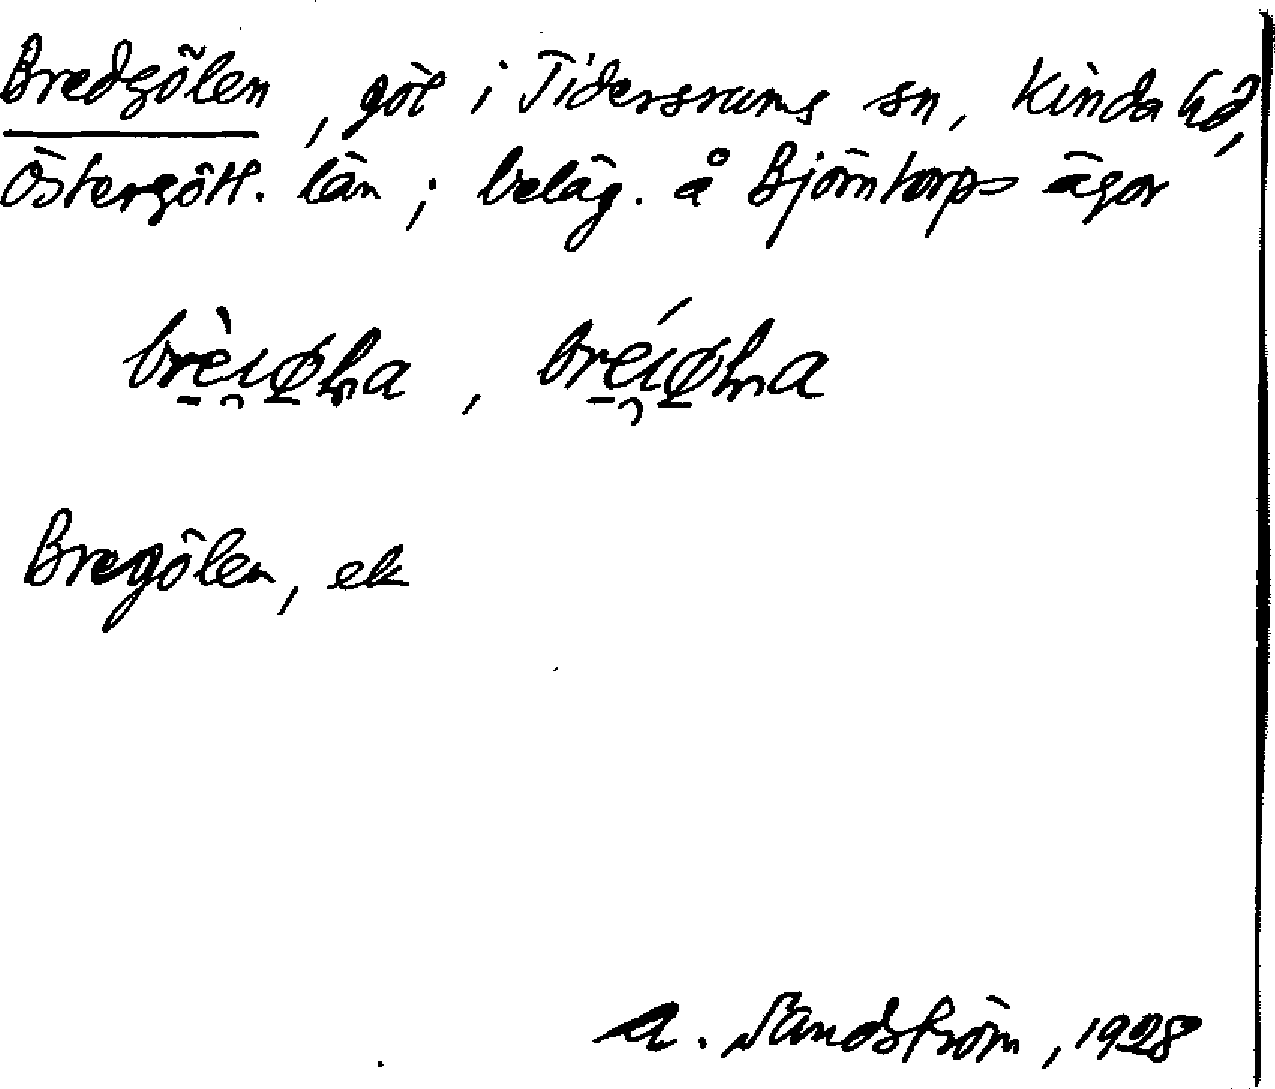 Bredgölen, göl i Tidersrums sn, Kinda hd,
Östergötl. län; beläg. å Björntorps ägor
Bregölen, ek
A. Sandström, 1928